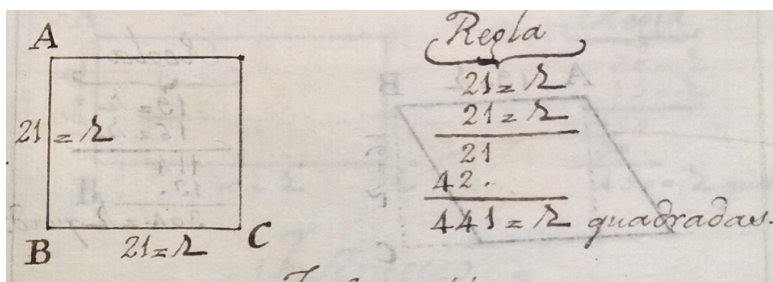 A
21 = R
B
21 = R
C
Regla
21 = R
21 = R
21
42.
441 = R quadradas.